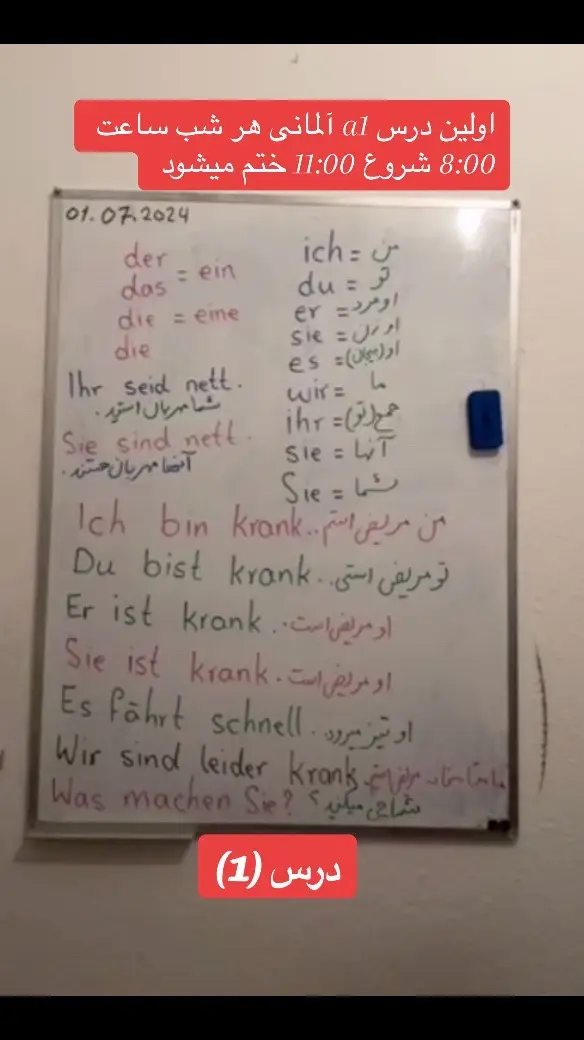 اولین درس a1 آلمانی هر شب ساعت
8:00 شروع 11:00 ختم میشود
01.07.2024
der
das = ein
die = eine
die
Ihr seid nett.
شما مهربان استید.
Sie sind nett.
آنها مهربان هستند.
ich = من
du = تو
er = او مرد
sie = او زن
es = او (بیجان)
wir = ما
ihr = جمع (تو)
sie = آنها
Sie = شما
Ich bin krank.. من مریض استم
Du bist krank.. تو مریض استی
Er ist krank.. او مریض است
Sie ist krank. او مریض است
Es fährt schnell. او تیز میرود
Wir sind leider krank. ما متاسفانه مریض استیم
Was machen Sie? شما چی میکنید؟
درس (1)